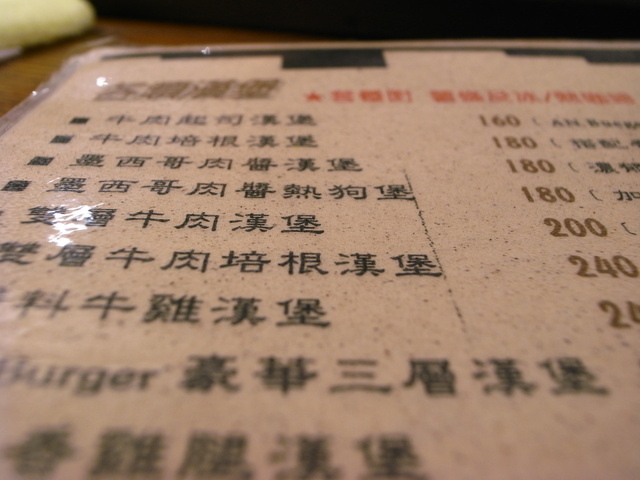 漢堡 ★
牛肉起司漢堡 160 (
牛肉培根漢堡 180 (
墨西哥肉醬漢堡 180 (
墨西哥肉醬熱狗堡 180 ( 加
雙層牛肉漢堡 200 (
雙層牛肉培根漢堡 240
料牛雞漢堡
Burger 豪華三層漢堡
香雞腿漢堡